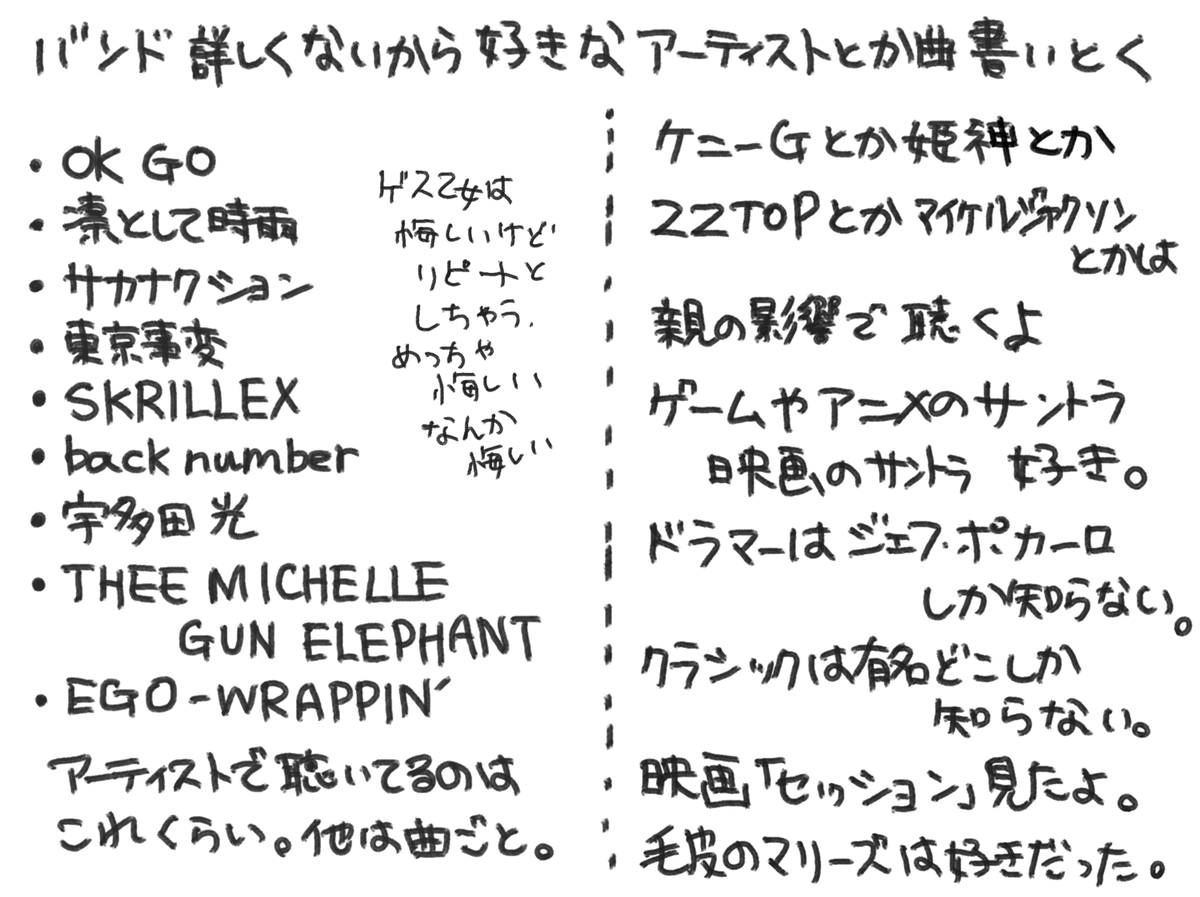 バンド詳しくないから好きなアーティストとか曲書いとく
・OK GO
・凛として時雨
・サカナクション
・東京事変
・SKRILLEX
・back number
・宇多田光
・THEE MICHELLE
GUN ELEPHANT
・EGO-WRAPPIN'
アーティストで聴いてるのは
これくらい。他は曲ごと。
ゲス乙女は
悔しいけど
リピートと
しちゃう.
めっちゃ
悔しい
なんか
悔しい
ケニーGとか姫神とか
ZZTOPとかマイケルジャクソン
とかは
親の影響で聴くよ
ゲームやアニメのサントラ
映画のサントラ 好き。
ドラマーはジェフ・ポカーロ
しか知らない。
クラシックは有名どこしか
知らない。
映画「セッション」見たよ。
毛皮のマリーズは好きだった。